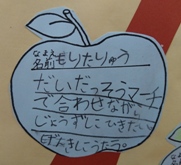 なまえ
名前 もりたりゅう
だいだっそうマーチ
で合わせながら
じょうずにこできたい
げんきしこうたう。